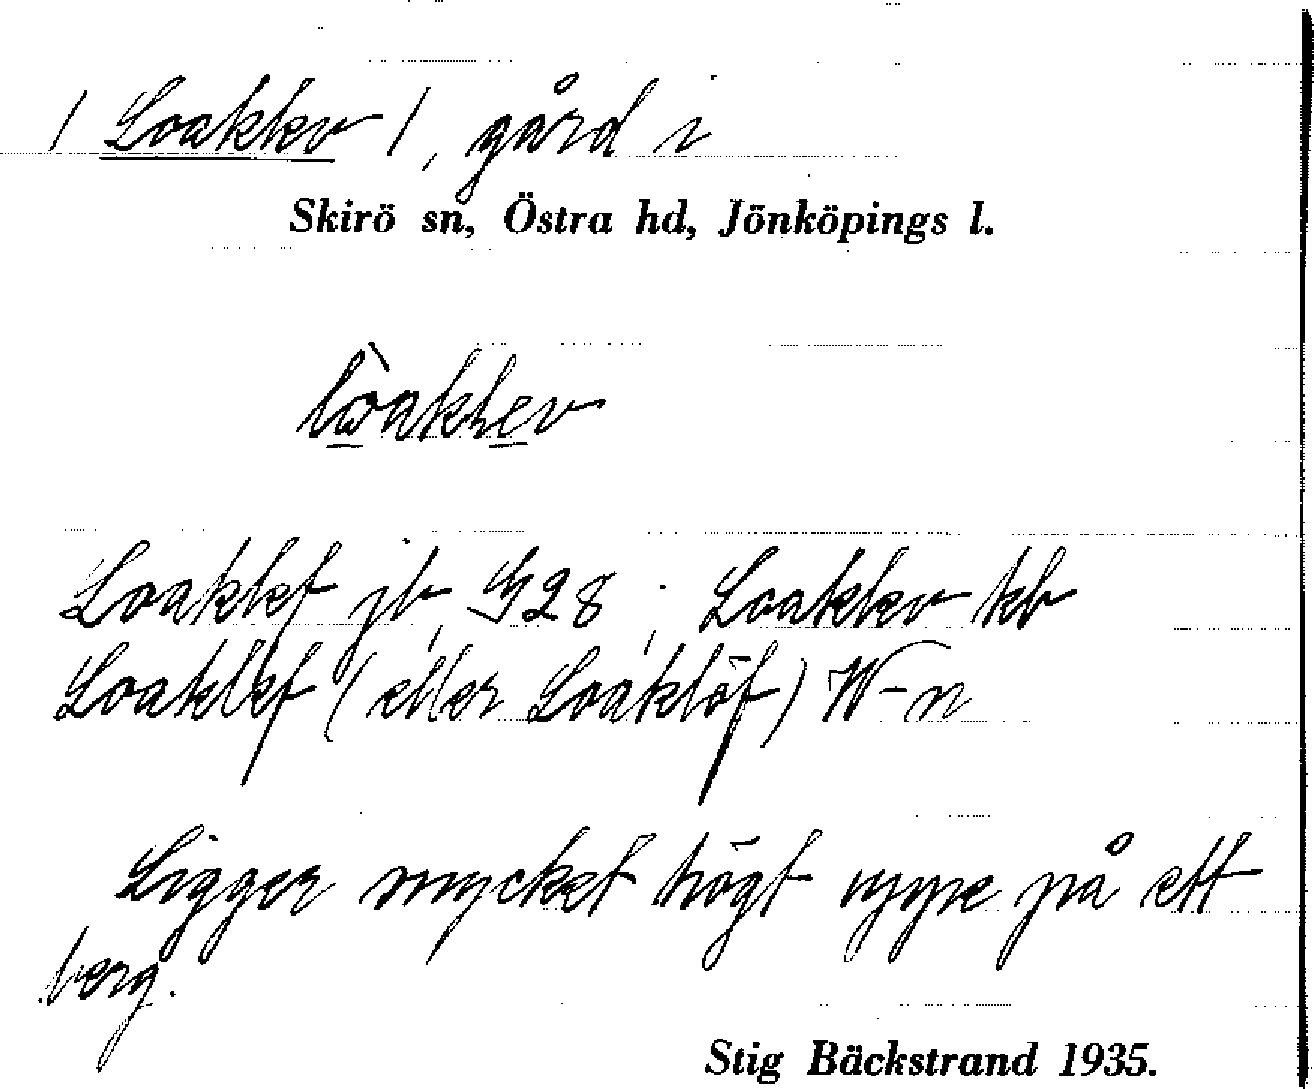 / Loaklev /, gård i
Skirö sn, Östra hd, Jönköpings l.
Loaklef jb, G28; Loaklev kb
Loaklef (eller Loaklöf) W-n
Ligger mycket högt uppe på ett
berg.
Stig Bäckstrand 1935.